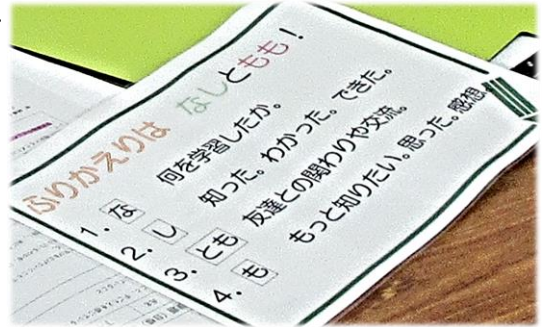 ふりかえりは なしともも！
1. な 何を学習したか。
2. し 知った。わかった。できた。
3. とも 友達との関わりや交流。
4. も もっと知りたい。思った。感想